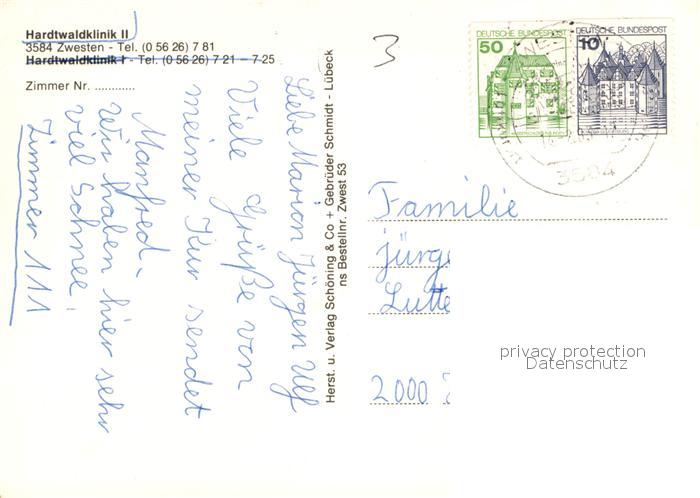 Hardtwaldklinik II
3584 Zwesten - Tel. (0 56 26) 7 81
Hardtwaldklinik I - Tel. (0 56 26) 7 21 - 7-25
Zimmer Nr. ............
Liebe Marion Jürgen Ulf
Viele Grüße von
meiner Kur sendet
Manfred.
Wir haben hier sehr
viel Schnee!
Zimmer 111
Herst. u. Verlag Schöning & Co + Gebrüder Schmidt - Lübeck
ns Bestellnr. Zwest 53
3
DEUTSCHE BUNDESPOST
50
DEUTSCHE BUNDESPOST
10
3584
Familie
Jürge
Lutte
2000
privacy protection
Datenschutz